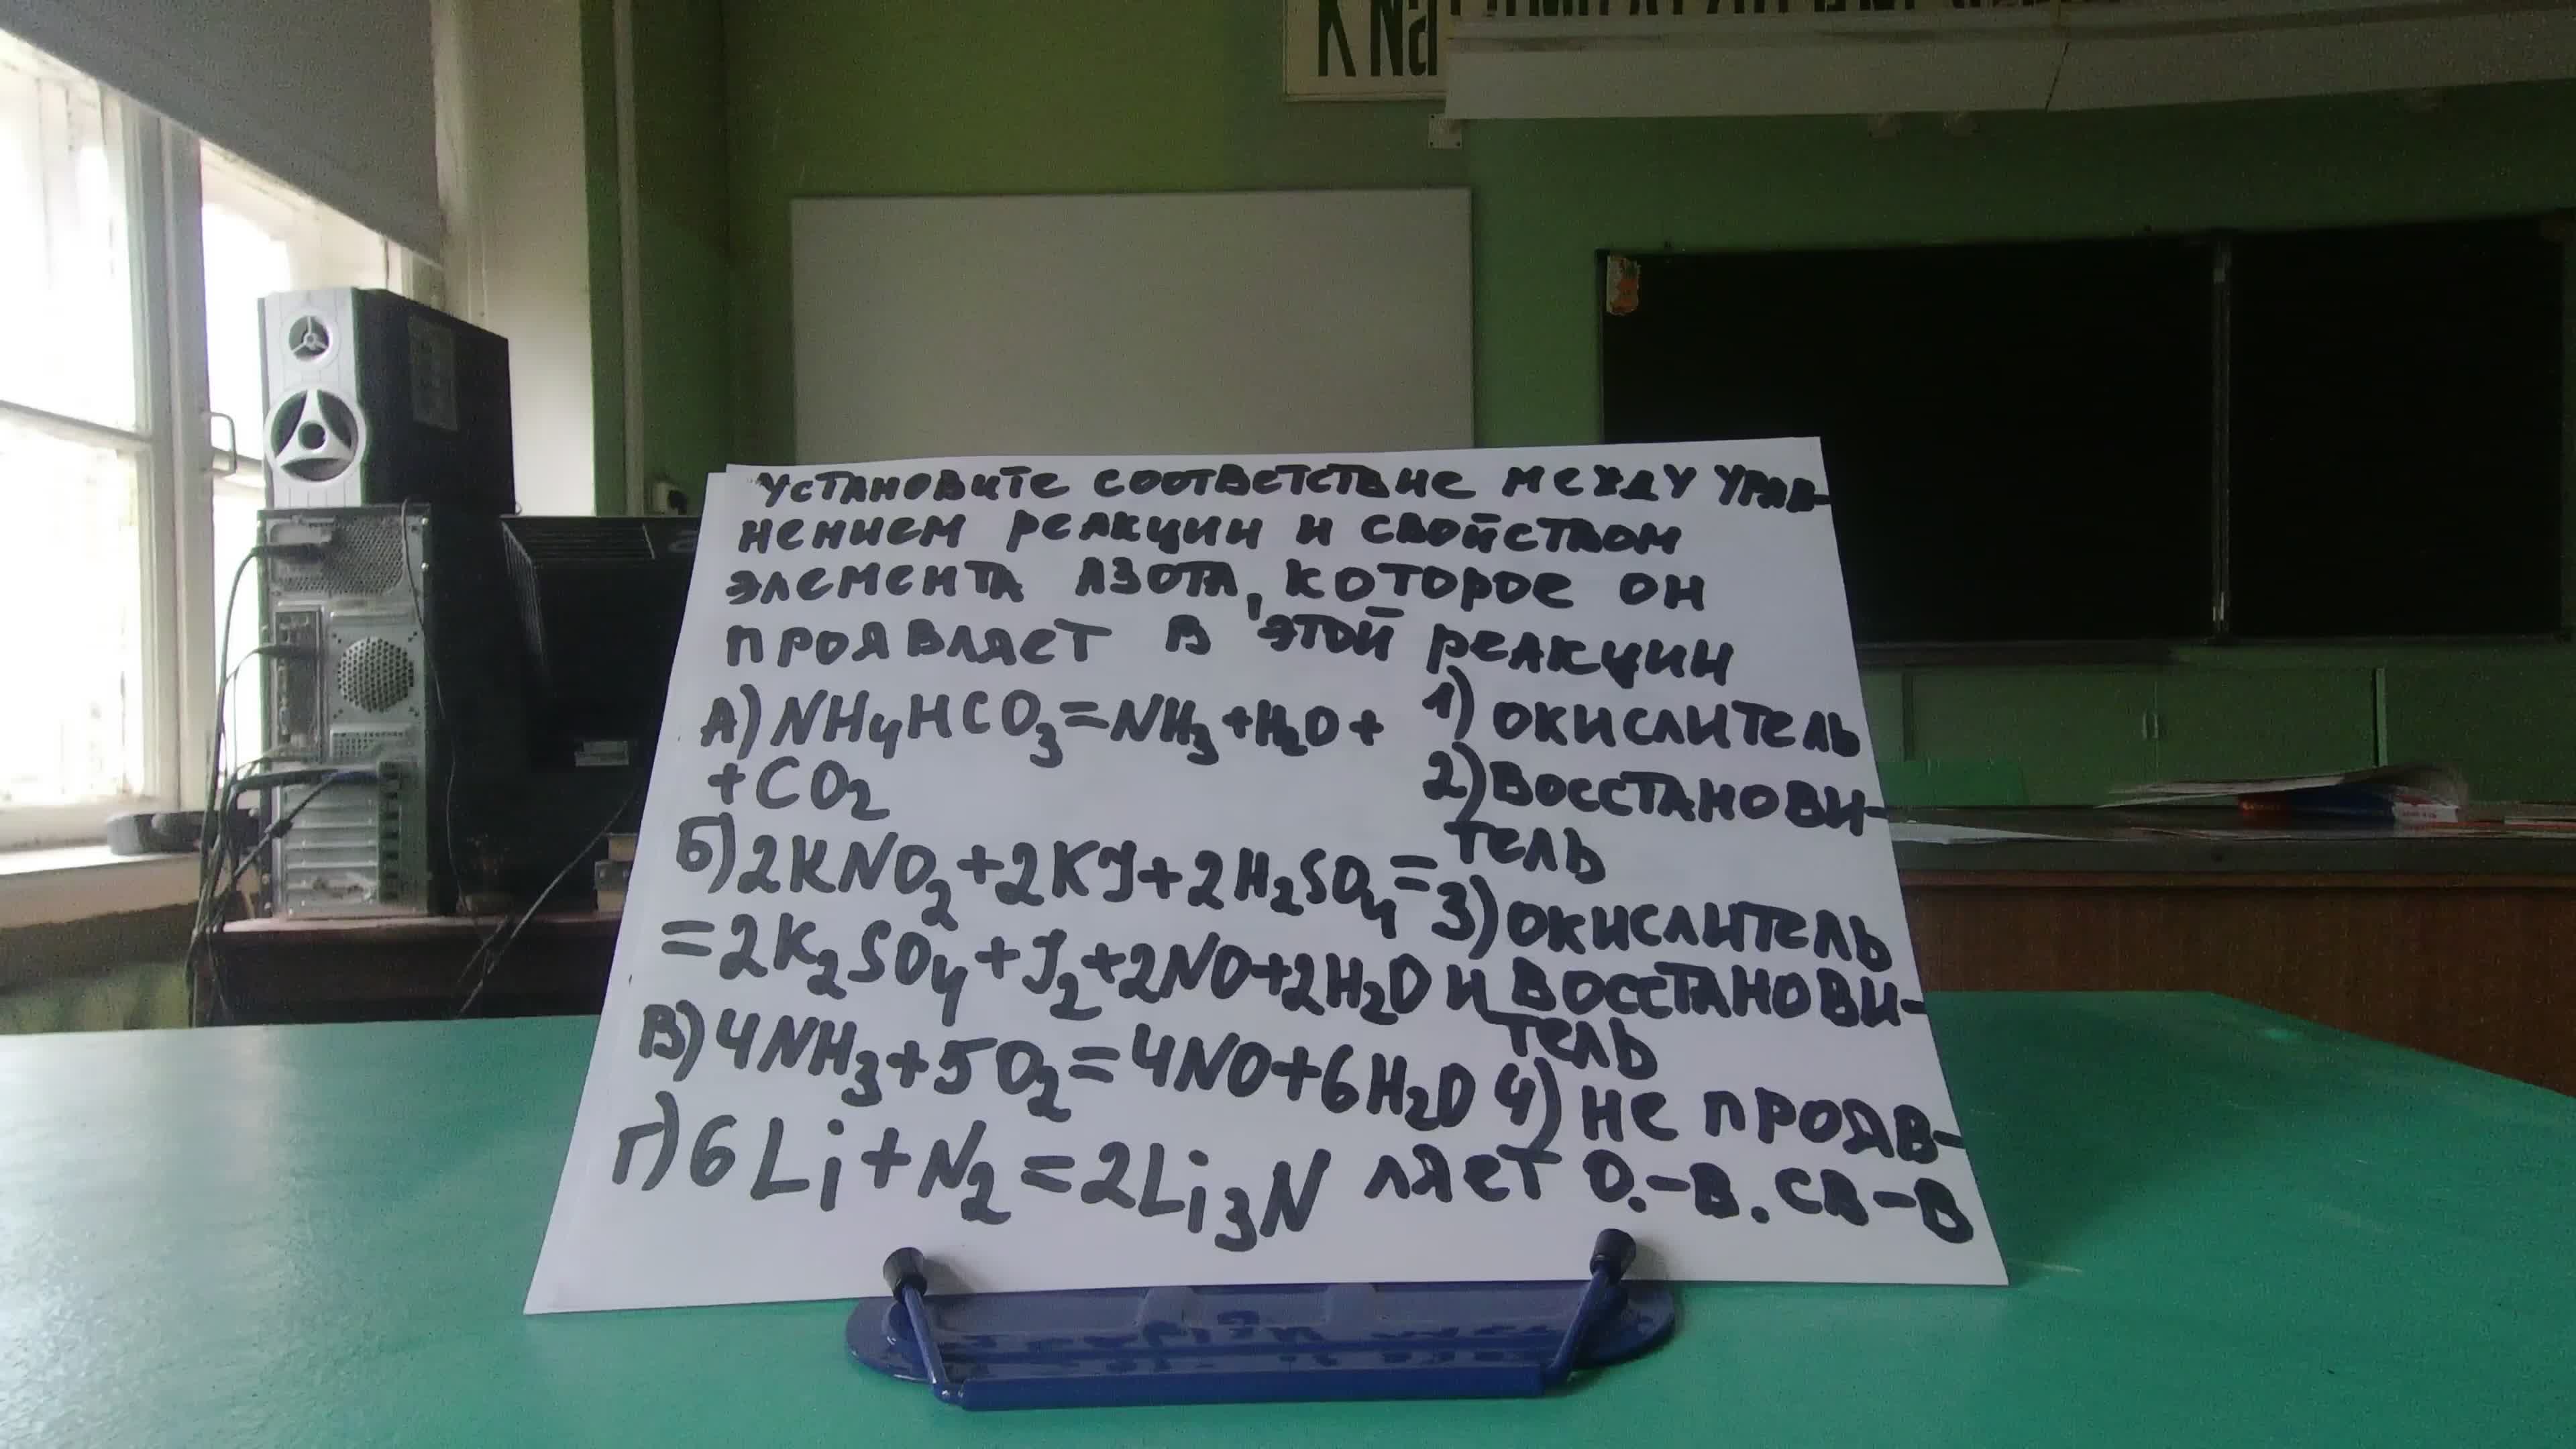 K Na
Установите соответствие между урав-
нением реакции и свойством
элемента азота, которое он
проявляет в этой реакции
А) NH₄HCO₃=NH₃+H₂O+
+CO₂
Б) 2KNO₂+2KJ+2H₂SO₄=
=2K₂SO₄+J₂+2NO+2H₂O
В) 4NH₃+5O₂=4NO+6H₂O
Г) 6Li+N₂=2Li₃N
1) окислитель
2) восстанови-
тель
3) окислитель
и восстанови-
тель
4) не прояв-
ляет о.-в. св-в